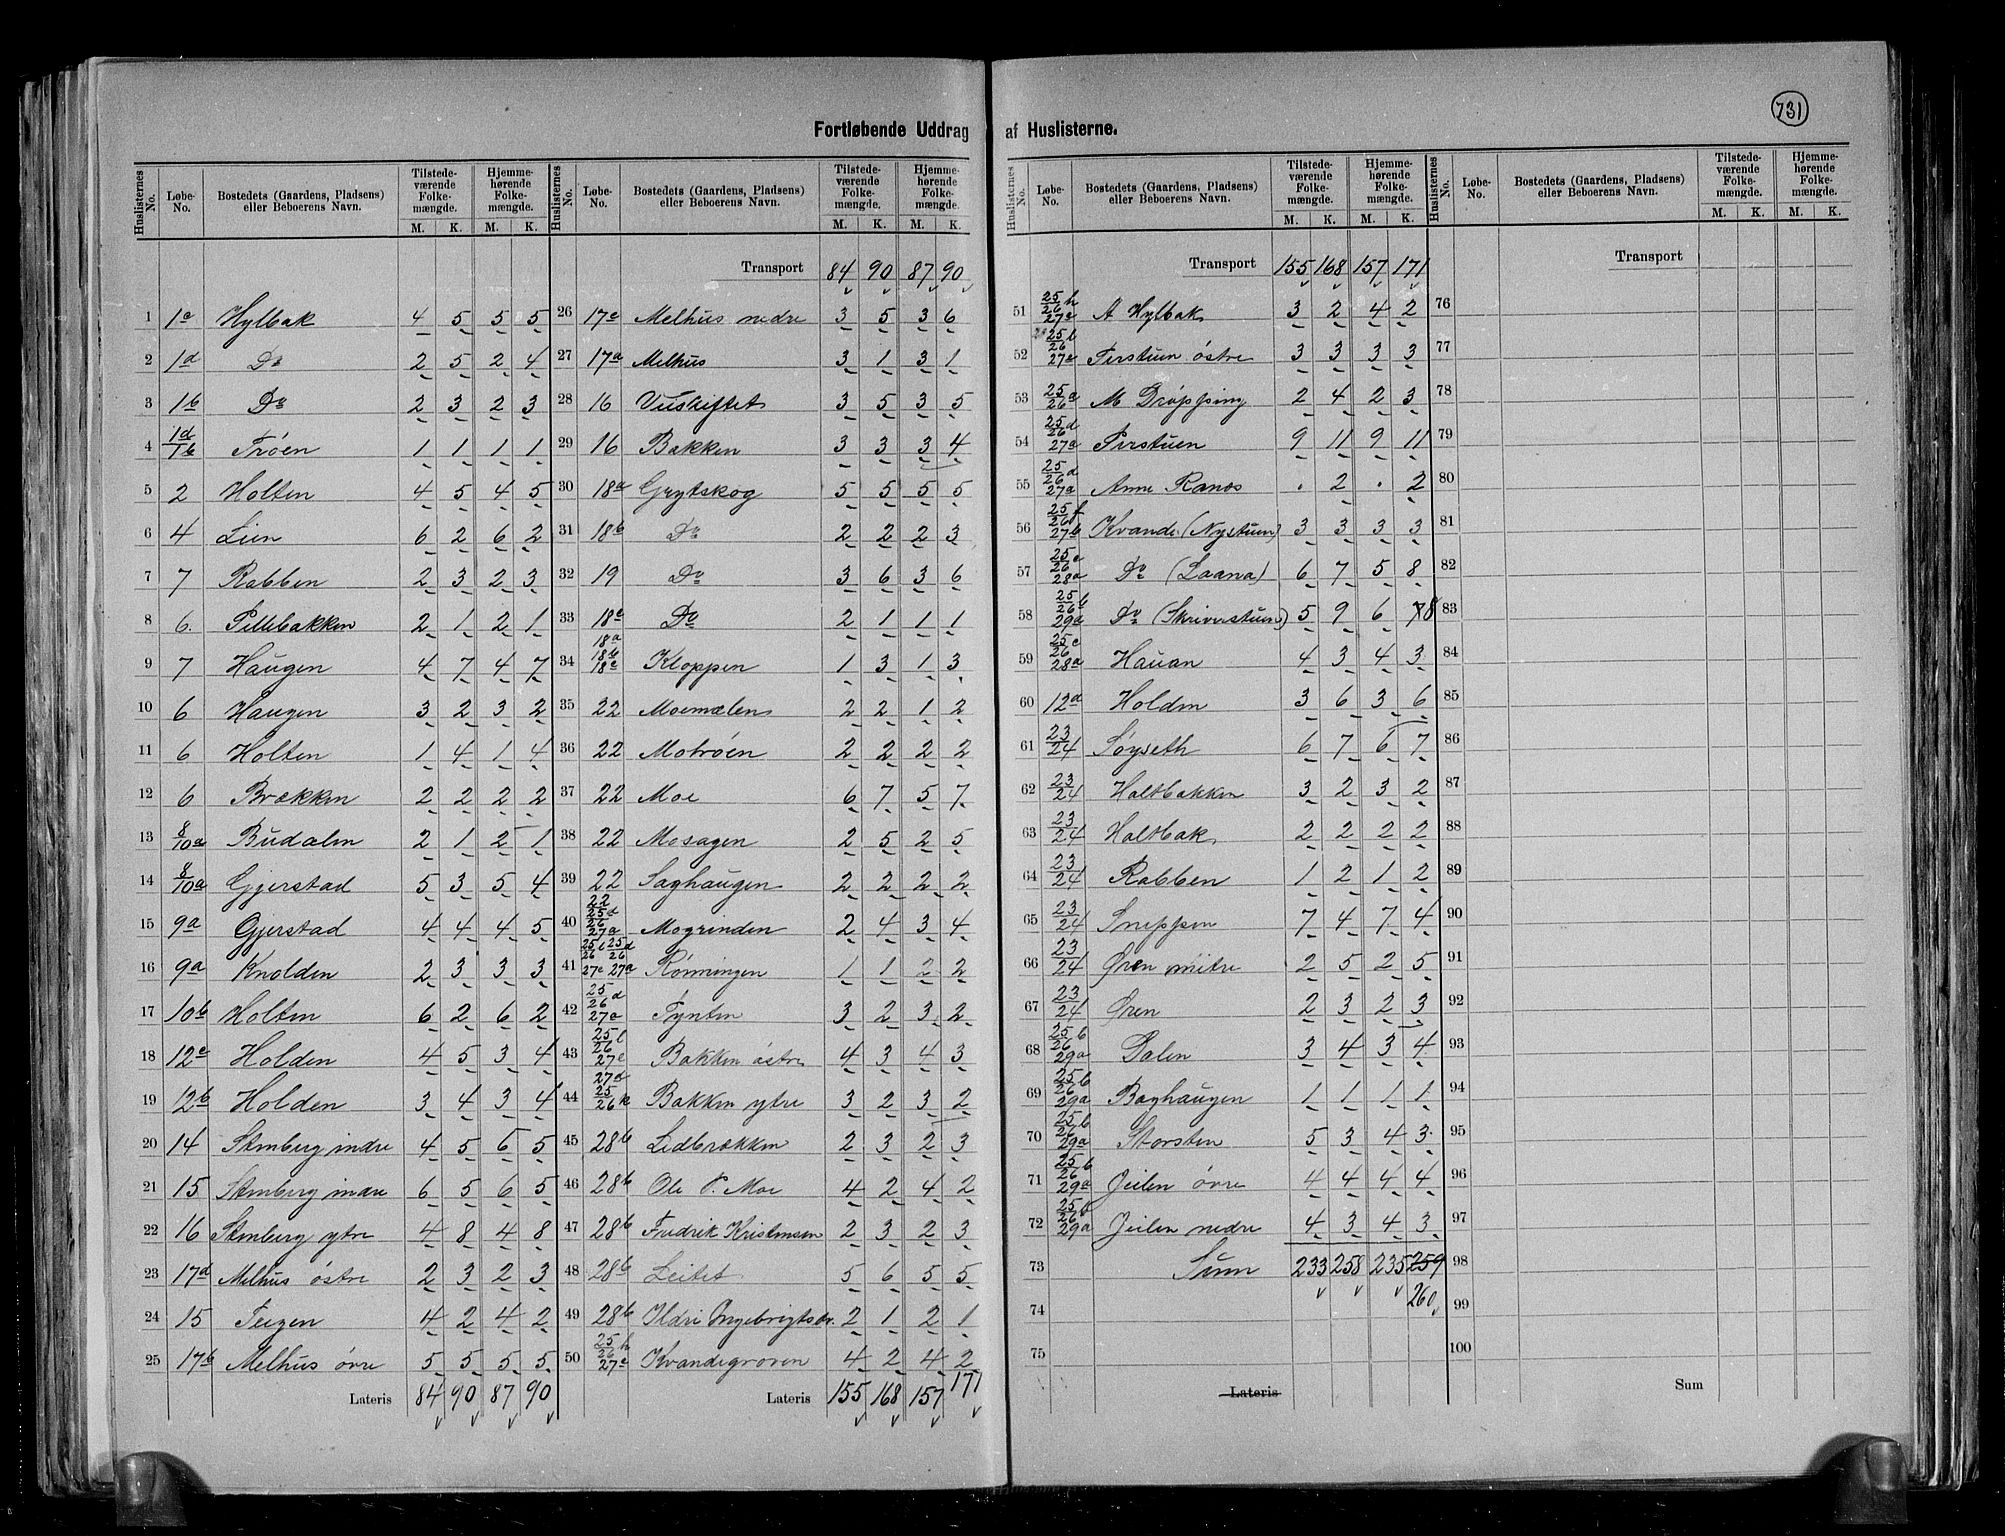 731
Fortløbende Uddrag af Huslisterne.
Huslisternes No. Løbe-No. Bostedets (Gaardens, Pladsens) eller Beboerens Navn. Tilstede-værende Folke-mængde. M. K. Hjemme-hørende Folke-mængde. M. K.
1 1c Hylbak 4 5 5 5
2 1d Do 2 5 2 4
3 1b Do 2 3 2 3
4 1d/1b Trøen 1 1 1 1
5 2 Holten 4 5 4 5
6 4 Lien 6 2 6 2
7 7 Rabben 2 3 2 3
8 6. Pillebakken 2 1 2 1
9 7 Haugen 4 7 4 7
10 6 Haugen 3 2 3 2
11 6 Holten 1 4 1 4
12 6 Brækken 2 2 2 2
13 8/10a Budalen 2 1 2 1
14 8/10a Gjerstad 5 3 5 4
15 9a Gjerstad 4 4 4 5
16 9a Knolden 2 3 3 3
17 10b Holten 6 2 6 2
18 12c Holden 4 5 3 4
19 12b Holden 3 4 3 4
20 14 Stenberg indre 4 5 6 5
21 15 Stenberg indre 6 5 6 5
22 16 Stenberg ytre 4 8 4 8
23 17d Melhus østre 2 3 2 3
24 15 Teigen 4 2 4 2
25 17b Melhus øvre 5 5 5 5
Lateris 84 90 87 90
Huslisternes No. Løbe-No. Bostedets (Gaardens, Pladsens) eller Beboerens Navn. Tilstede-værende Folke-mængde. M. K. Hjemme-hørende Folke-mængde. M. K.
Transport 84 90 87 90
26 17c Melhus nedre 3 5 3 6
27 17a Melhus 3 1 3 1
28 16 Utskiftet 3 5 3 5
29 16 Bakken 3 3 3 4
30 18a Grytskog 5 5 5 5
31 18b Do 2 2 2 3
32 19 Do 3 6 3 6
33 18c Do 2 1 1 1
34 18a 18b 18c Kloppen 1 3 1 3
35 22 Moemælen 2 2 1 2
36 22 Motrøen 2 2 2 2
37 22 Moe 6 7 5 7
38 22 Mosagen 2 5 2 5
39 22 Saghaugen 2 2 2 2
40 22 25d 26 27a Mogrinden 2 4 3 4
41 25l 25d 26 26 27c 27a Rønningen 1 1 2 2
42 25 26d 27a Tynten 3 2 3 2
43 25l 26 27c Bakken østre 4 3 4 3
44 27d 25 26k Bakken ytre 3 2 3 2
45 28b Lidbrækken 2 3 2 3
46 28b Ole P. Moe 4 2 4 2
47 28b Fredrik Kristensen 2 3 2 3
48 28b Leitet 5 6 5 5
49 28b Ildri Ingebrigtsdr. 2 1 2 1
50 25h 26 27c Kvandegroven 4 2 4 2
Lateris 155 168 157 171
Huslisternes No. Løbe-No. Bostedets (Gaardens, Pladsens) eller Beboerens Navn. Tilstede-værende Folke-mængde. M. K. Hjemme-hørende Folke-mængde. M. K.
Transport 155 168 157 171
51 25h 26 27c A Hylbak 3 2 4 2
52 25l 26 27c Perstuen østre 3 3 3 3
53 25a 26 M Drøpping 2 4 2 3
54 25d 26 27a Perstuen 9 11 9 11
55 25d 26 27a Anne Ranøs . 2 . 2
56 25f 26 27b Kvande (Nystuen) 3 3 3 3
57 25c 26 28a Do (Laana) 6 7 5 8
58 25b 26 29a Do (Skriverstuen) 5 9 6 8
59 25c 26 28a Hauan 4 3 4 3
60 12d Holden 3 6 3 6
61 23/24 Søyseth 6 7 6 7
62 23/24 Holtbakken 3 2 3 2
63 23/24 Holtbak 2 2 2 2
64 23/24 Rabben 1 2 1 2
65 23/24 Sneppen 7 4 7 4
66 23/24 Øren mitre 2 5 2 5
67 23/24 Øren 2 3 2 3
68 25b 26 29a Dalen 3 4 3 4
69 25b 26 29a Baghaugen 1 1 1 1
70 25b 26 29a Storsten 5 3 4 3
71 25b 26 29a Jeilen øvre 4 4 4 4
72 25b 26 29a Jeilen nedre 4 3 4 3
73 Sum 233 258 235 259
74 260
75
Lateris
Huslisternes No. Løbe-No. Bostedets (Gaardens, Pladsens) eller Beboerens Navn. Tilstede-værende Folke-mængde. M. K. Hjemme-hørende Folke-mængde. M. K.
Transport
76
77
78
79
80
81
82
83
84
85
86
87
88
89
90
91
92
93
94
95
96
97
98
99
100
Sum